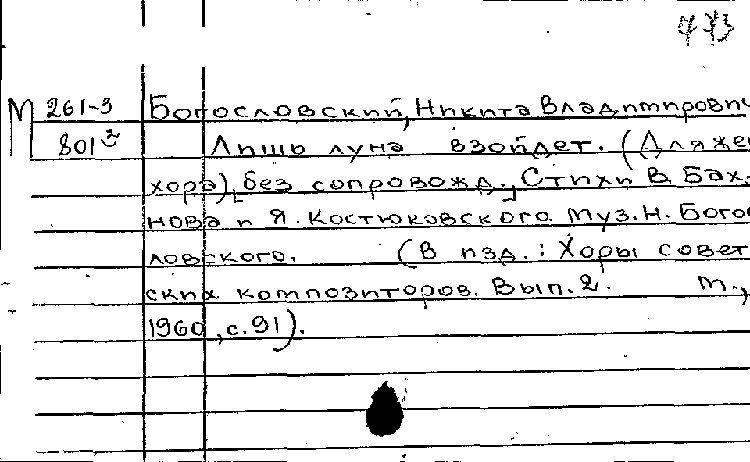 473
М 261-3 Богословский, Никита Владимирович
801² Лишь луна взойдет. (Для жен
хора), [без сопровожд.] Стихи В. Бах-
нова и Я. Костюковского. Муз. Н. Богос
ловского. (В изд.: Хоры совет
ских композиторов. Вып. 2. М.,
1960, с. 91).